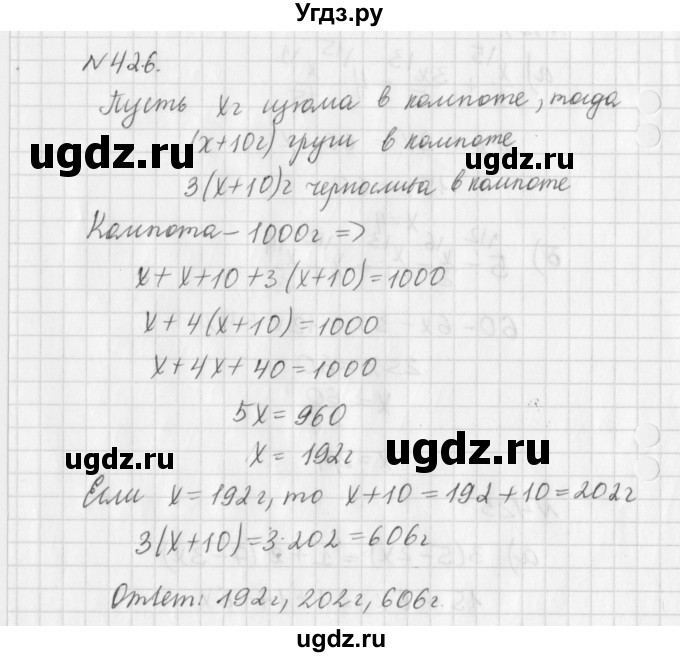 Угдз.ру
№426.
Пусть хг изюма в компоте, тогда
(х+10г) груш в компоте
ugdz.ru ugdz.ru
3(х+10)г чернослива в компоте
Компота – 1000г =>
х + х+10 +3(х+10)=1000
х+4(х+10)=1000
х+4х+40=1000
5х=960
ugdz.ru ugdz.ru
х= 192г
Если х=192г, то х+10=192+10=202г
3(х+10)=3·202=606г
Ответ: 192г, 202г, 606г.
ugdz.ru ugdz.ru
ugdz.ru